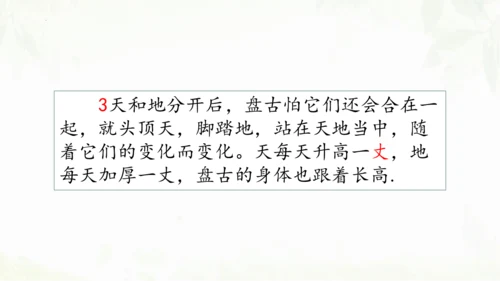 3天和地分开后，盘古怕它们还会合在一
起，就头顶天，脚踏地，站在天地当中，随
着它们的变化而变化。天每天升高一丈，地
每天加厚一丈，盘古的身体也跟着长高.